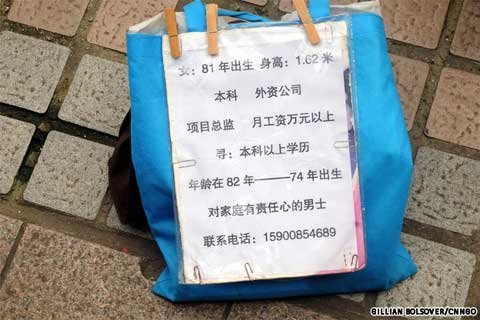 女：81年出生 身高：1.62 米
本科 外资公司
项目总监 月工资万元以上
寻：本科以上学历
年龄在 82 年———74 年出生
对家庭有责任心的男士
联系电话：15900854689
GILLIAN BOLSOVER/CNNGO